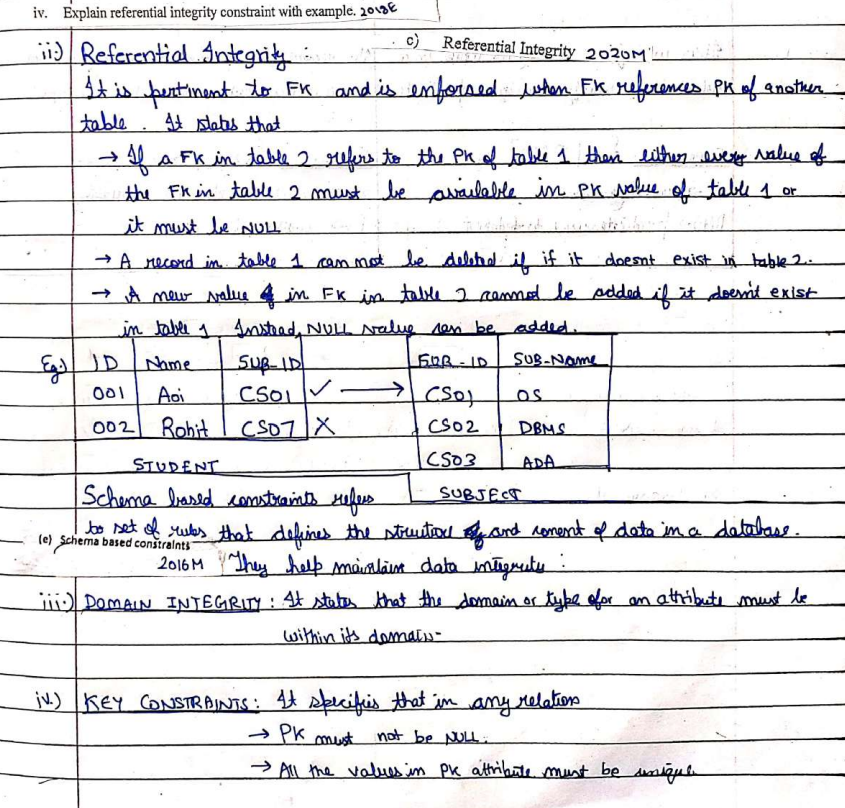 iv. Explain referential integrity constraint with example. 2018E
c) Referential Integrity 2020M
ii:) Referential Integrity :
It is pertinent to FK and is enforsed when FK references PK of another
table. It states that
→ If a FK in table 2 refers to the PK of table 1 then either every value of
the FK in table 2 must be available in PK value of table 1 or
it must be NULL
→ A record in table 1 can not be deleted if if it doesnt exist in table 2.
→ A new value in FK in table 2 cannot be added if it doesn't exist
in table 1 Instead, NULL value can be added.
Eg:) ID Name SUB-ID SUB-ID SUB-Name
001 Aoi CS01 ✓ → CS01 OS
002 Rohit CS07 X CS02 DBMS
STUDENT CS03 ADA
Schema based constraints refers SUBJECT
to set of rules that defines the structure and conent of data in a database.
(e) Schema based constraints
2016M They help maintain data integrity :
iii:) DOMAIN INTEGRITY : It states that the domain or type for an attribute must be
within its domain-
iv.) KEY CONSTRAINTS: It specifies that in any relation
→ PK must not be NULL.
→ All the values in PK attribute must be unique.